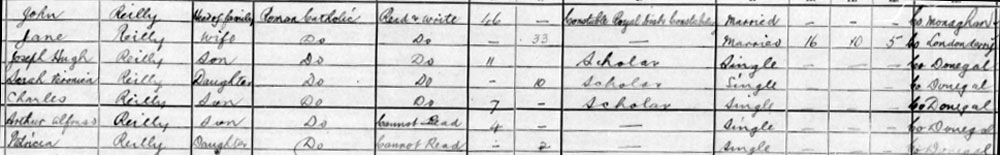 John Reilly Head of family Roman Catholic Read & write 46 — Constable Royal Irish Constabulary Married — — — Co Monaghan
Jane Reilly Wife Do Do — 33 — Married 16 10 5 Co Londonderry
Joseph Hugh Reilly Son Do Do 11 — Scholar Single — — — Co Donegal
Sarah Veronica Reilly Daughter Do Do — 10 Scholar Single — — — Co Donegal
Charles Reilly Son Do Do 7 — Scholar Single — — — Co Donegal
Arthur Alfonso Reilly Son Do Cannot Read 4 — — Single — — — Co Donegal
Reilly Daughter Do Cannot Read — 2 — Single — — — Co Donegal